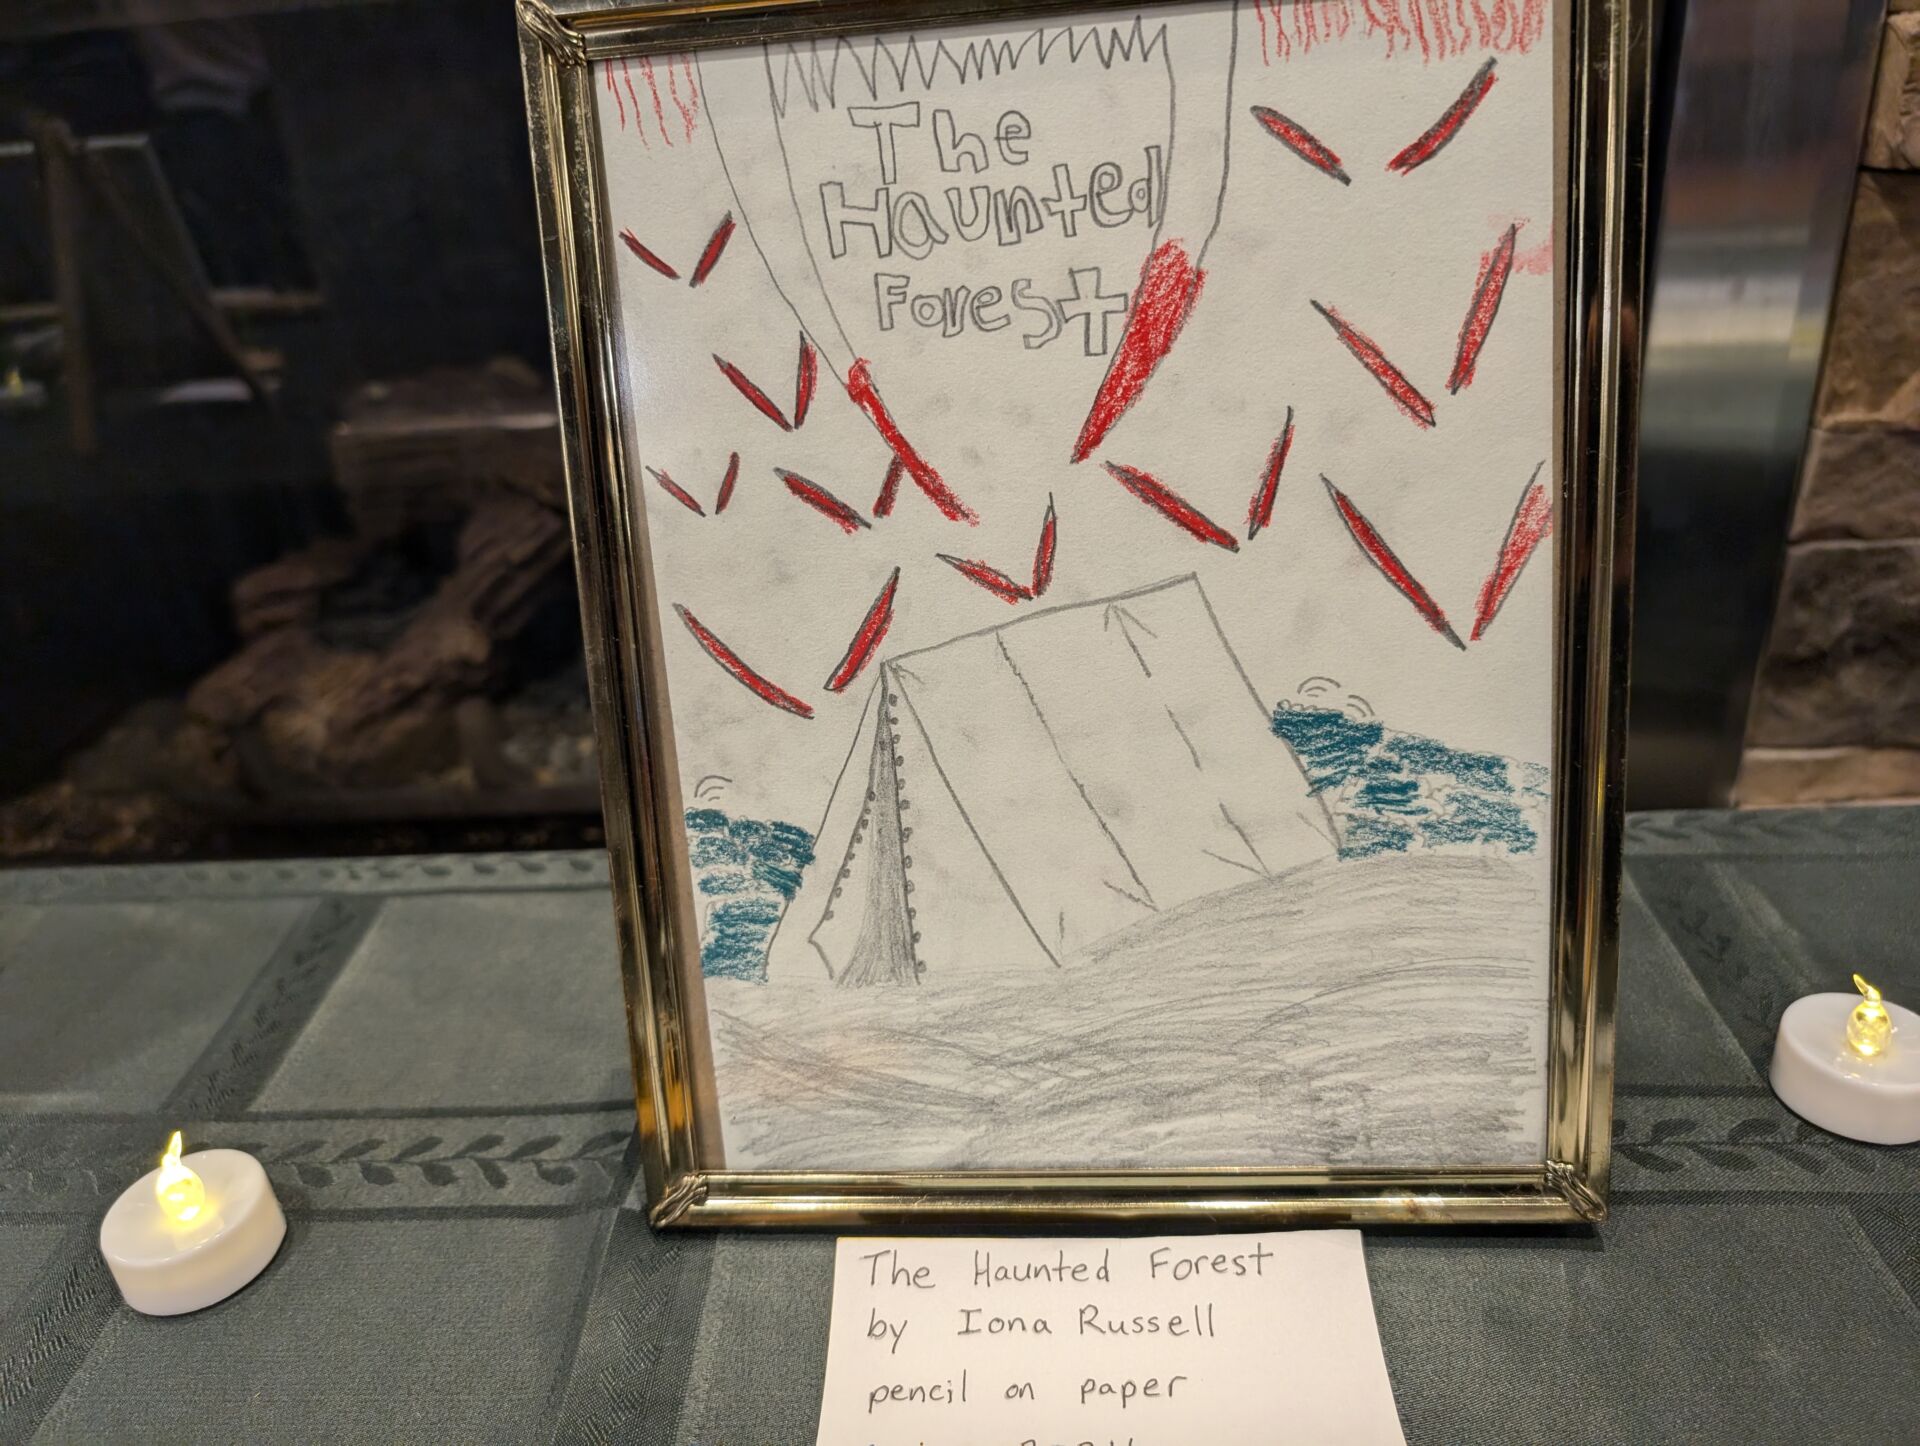 The
Haunted
Forest
The Haunted Forest
by Iona Russell
pencil on paper